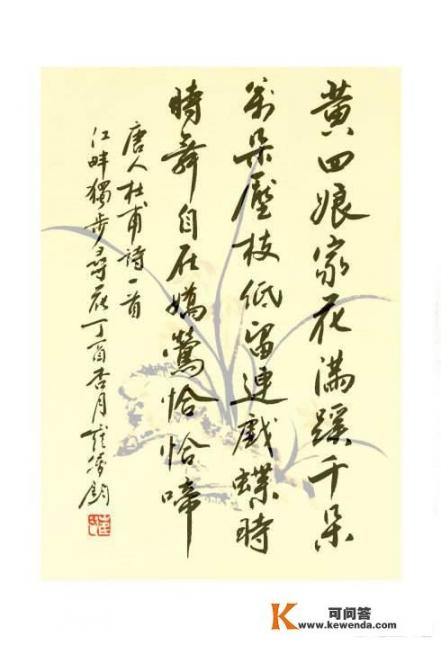 黄四娘家花满蹊千朵
萬朵壓枝低留連戲蝶時
時舞自在嬌鶯恰恰啼
唐人杜甫詩一首
江畔獨步尋花丁酉杏月
K 可问答
www.kewenda.com